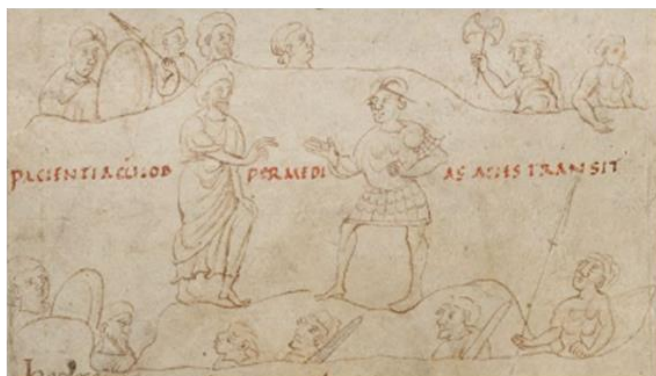 PACIENTIA CŪ IOB PER MEDI AS ACIES TRANSIT